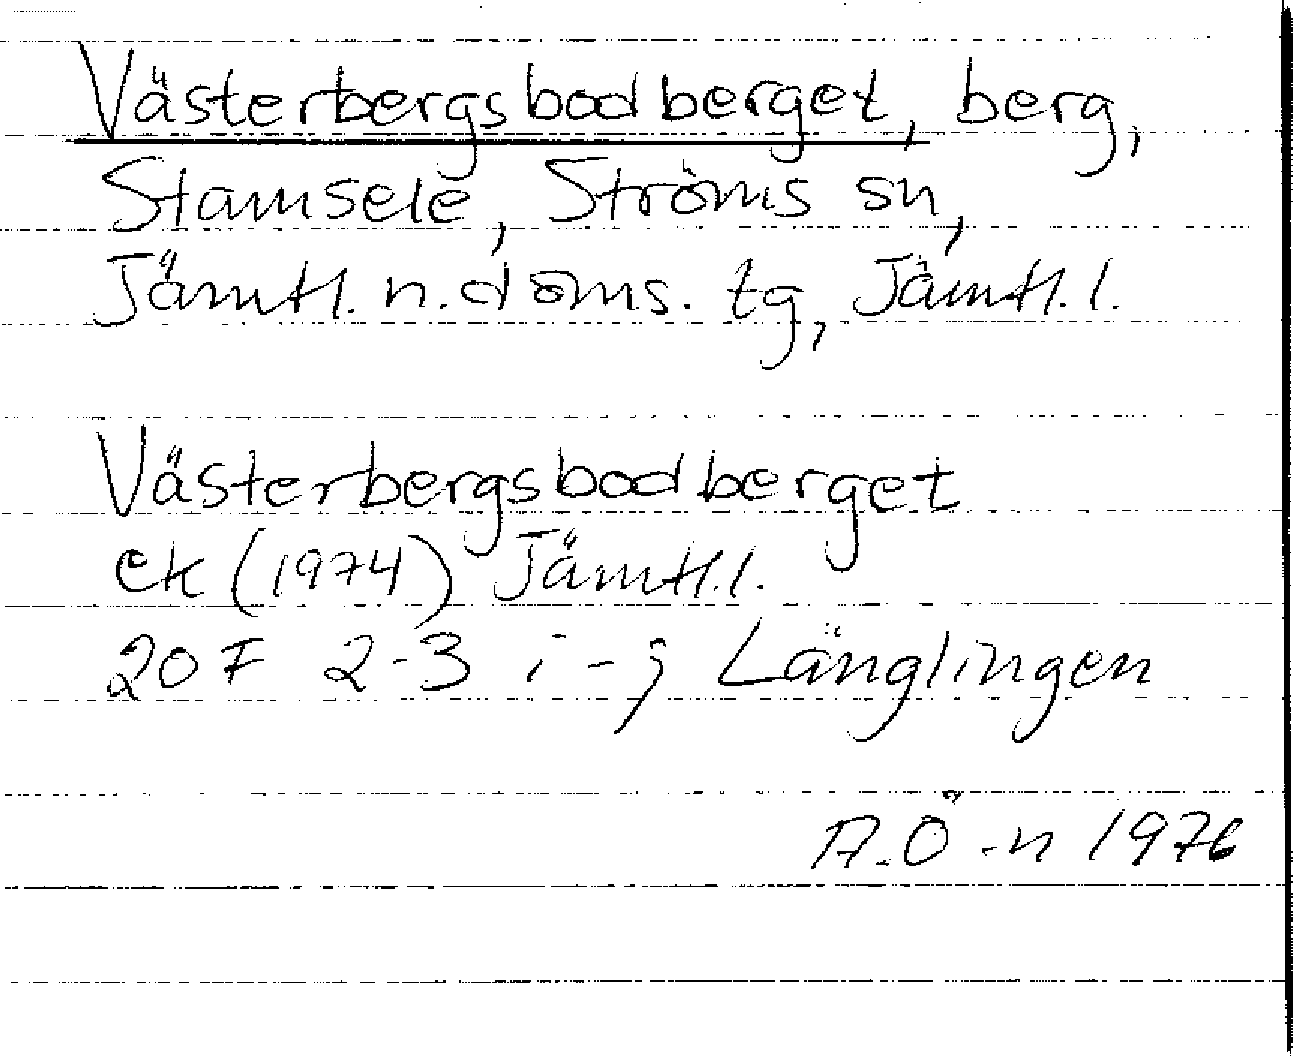 Västerbergsbodberget, berg,
Stamsele, Ströms sn,
Jämtl. n. doms. tg, Jämtl. l.
Västerbergsbodberget
ek (1974) Jämtl. l.
20 F 2-3 i-j Länglingen
A. Ö-n 1976